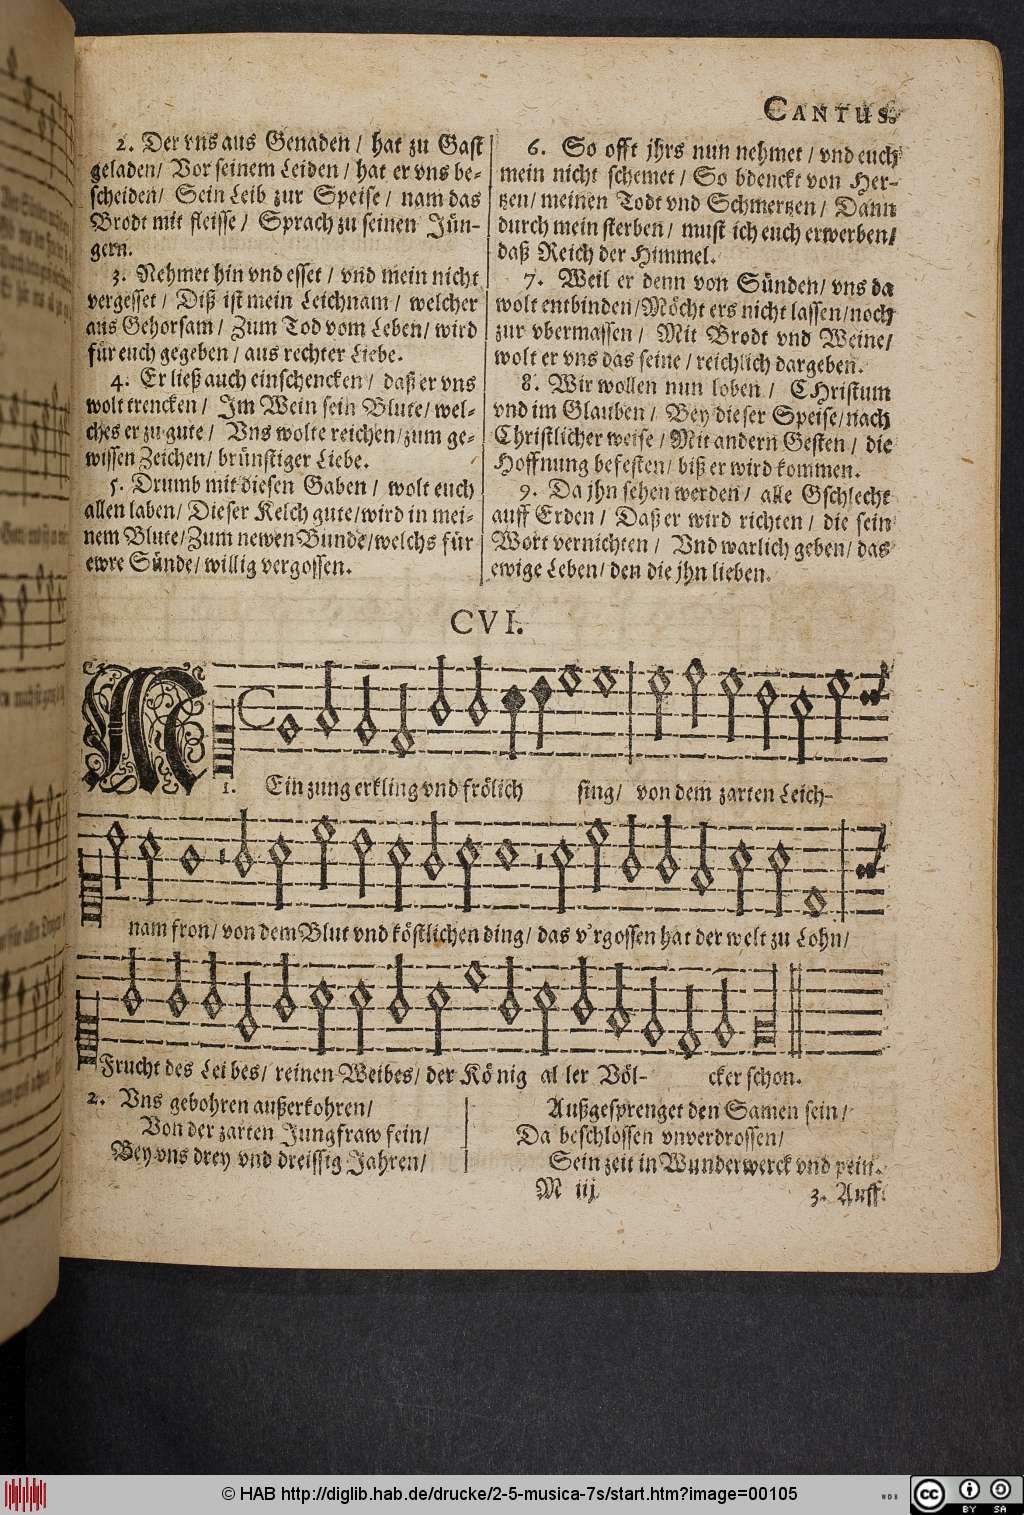 CANTUS.
2. Der vns aus Genaden / hat zu Gast
geladen / Vor seinem Leiden / hat er vns be-
scheiden / Sein Leib zur Speise / nam das
Brodt mit fleisse / Sprach zu seinen Jün-
gern.
3. Nehmet hin vnd esset / vnd mein nicht
vergesset / Diß ist mein Leichnam / welcher
aus Gehorsam / Zum Tod vom Leben / wird
für euch gegeben / aus rechter Liebe.
4. Er ließ auch einschencken / daß er vns
wolt trencken / Im Wein sein Blute / wel-
ches er zu gute / Vns wolte reichen / zum ge-
wissen Zeichen / brünstiger Liebe.
5. Drumb mit diesen Gaben / wolt euch
allen laben / Dieser Kelch gute / wird in mei-
nem Blute / Zum newen Bunde / welchs für
ewre Sünde / willig vergossen.
6. So offt jhrs nun nehmet / vnd euch
mein nicht schemet / So bdenckt von Her-
tzen / meinen Todt vnd Schmertzen / Dann
durch mein sterben / must ich euch erwerben /
daß Reich der Himmel.
7. Weil er denn von Sünden / vns da
wolt entbinden / Möcht ers nicht lassen / noch
zur vbermassen / Mit Brodt vnd Weine /
wolt er vns das seine / reichlich dargeben.
8. Wir wollen nun loben / CHristum
vnd im Glauben / Bey dieser Speise / nach
Christlicher weise / Mit andern Gesten / die
Hoffnung befesten / biß er wird kommen.
9. Da jhn sehen werden / alle Gschlecht
auff Erden / Daß er wird richten / die sein
Wort vernichten / Vnd warlich geben / das
ewige Leben / den die jhn lieben.
CVI.
1. MEin zung erkling vnd frölich sing / von dem zarten Leich-
nam fron / von dem Blut vnd köstlichen ding / das v'rgossen hat der welt zu Lohn /
Frucht des Lei bes / reinen Weibes / der Kö nig al ler Völ- cker schon.
2. Vns gebohren außerkohren /
Von der zarten Jungfraw fein /
Bey vns drey vnd dreissig Jahren /
Außgesprenget den Samen sein /
Da beschlossen vnverdrossen /
Sein zeit in Wunderwerck vnd pein.
M iij
3. Auff
© HAB http://diglib.hab.de/drucke/2-5-musica-7s/start.htm?image=00105
WDB
cc BY SA